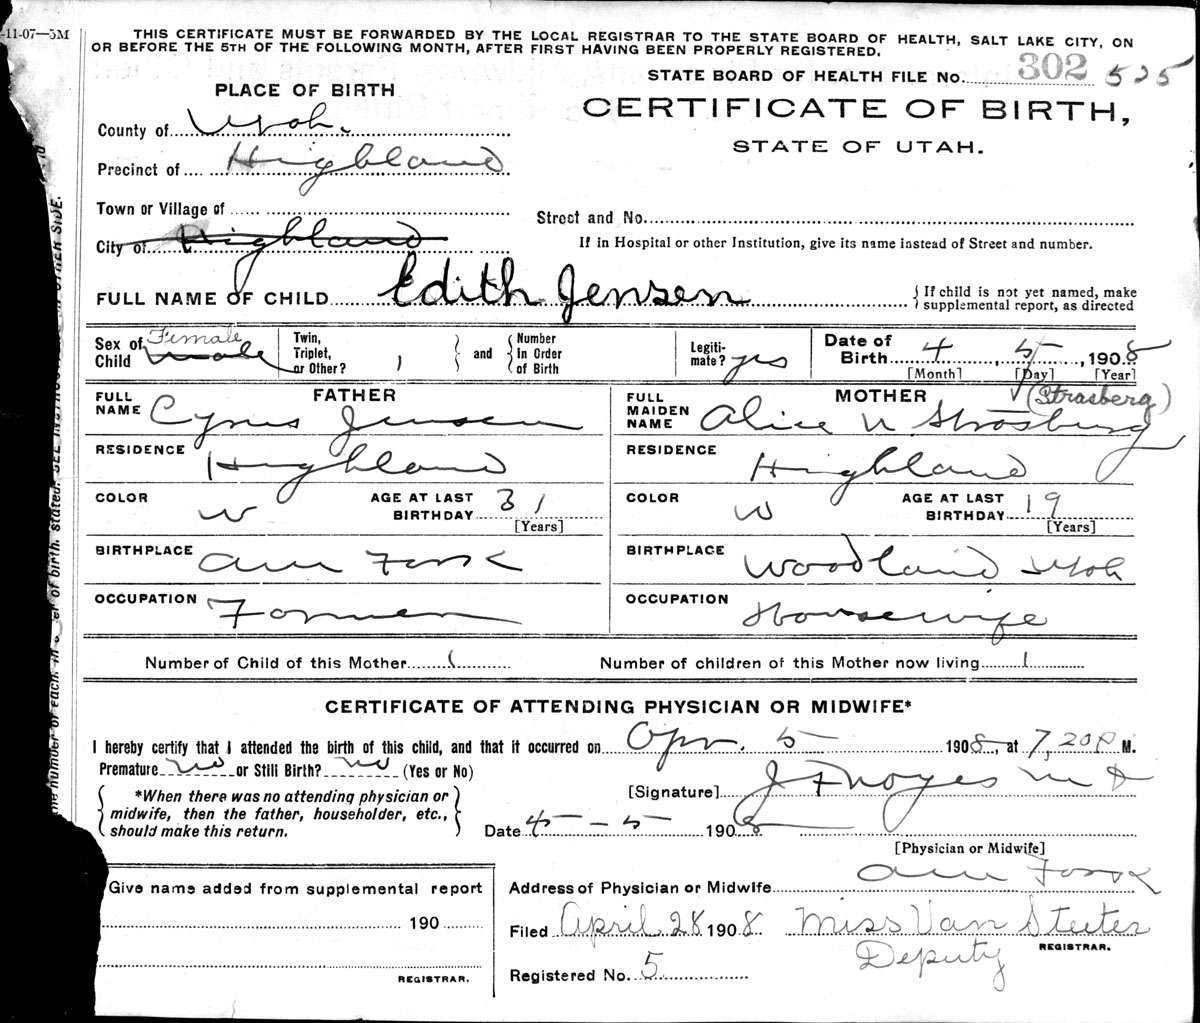 -11-07—5M
THIS CERTIFICATE MUST BE FORWARDED BY THE LOCAL REGISTRAR TO THE STATE BOARD OF HEALTH, SALT LAKE CITY, ON
OR BEFORE THE 5TH OF THE FOLLOWING MONTH, AFTER FIRST HAVING BEEN PROPERLY REGISTERED.
STATE BOARD OF HEALTH FILE No. 302 525
PLACE OF BIRTH
CERTIFICATE OF BIRTH,
STATE OF UTAH.
County of Utah.
Precinct of Highland
Town or Village of
Street and No.
City of Highland
If in Hospital or other Institution, give its name instead of Street and number.
FULL NAME OF CHILD Edith Jensen
{ If child is not yet named, make supplemental report, as directed
Sex of Child Female Male
Twin, Triplet, or Other? 1 } and { Number In Order of Birth
Legiti-mate? yes
Date of Birth 4 5, 1908
[Month] [Day] [Year]
FATHER
FULL NAME Cyrus Jensen
RESIDENCE Highland
COLOR W
AGE AT LAST BIRTHDAY 31
[Years]
BIRTHPLACE Am Fork
OCCUPATION Farmer
MOTHER (Strasberg)
FULL MAIDEN NAME Alice N Strasburg
RESIDENCE Highland
COLOR W
AGE AT LAST BIRTHDAY 19
[Years]
BIRTHPLACE Woodland Utah
OCCUPATION Housewife
Number of Child of this Mother 1
Number of children of this Mother now living 1
CERTIFICATE OF ATTENDING PHYSICIAN OR MIDWIFE*
I hereby certify that I attended the birth of this child, and that it occurred on Apr. 5 1908, at 7,20 P M.
Premature no or Still Birth? no (Yes or No)
{ *When there was no attending physician or
midwife, then the father, householder, etc.,
should make this return. }
[Signature] J F Noyes M D
Date 4 - 5 - 1908
[Physician or Midwife]
Give name added from supplemental report
190
REGISTRAR.
Address of Physician or Midwife Am Fork
Filed April 28 1908 Miss Van Steeter
Deputy REGISTRAR.
Registered No. 5